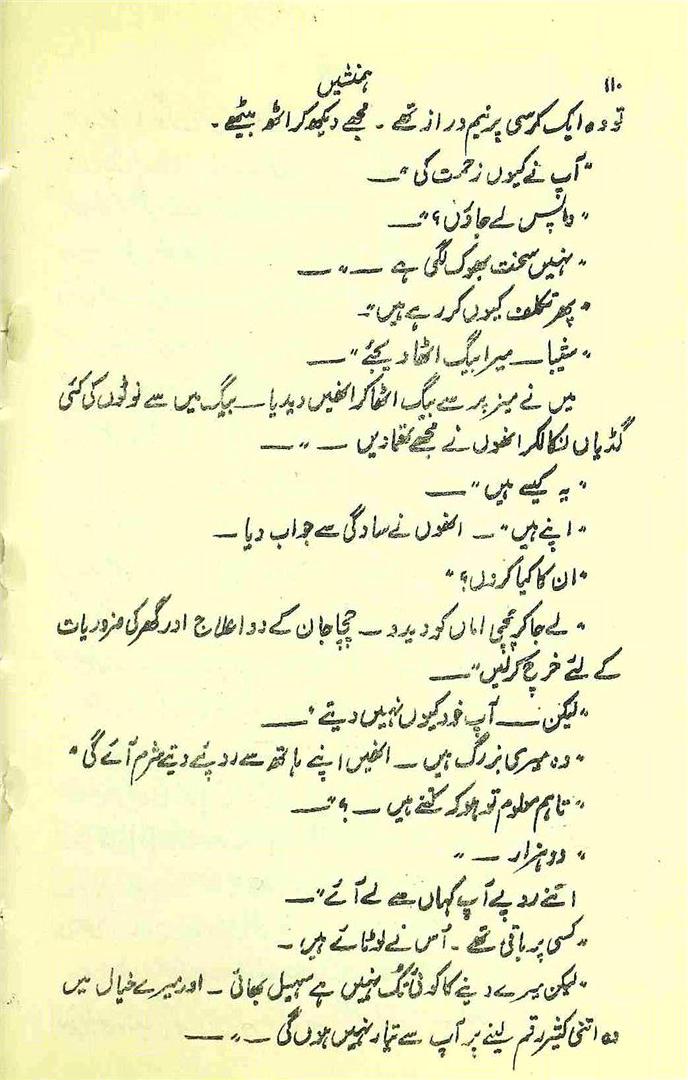 ۱۱۰
ہمنشیں
تو وہ ایک کرسی پر نیم دراز تھے ۔ مجھے دیکھ کر اٹھ بیٹھے ۔
"آپ نے کیوں زحمت کی" ــ
"واپس لے جاؤں؟" ــ
"نہیں سخت بھوک لگی ہے ــ" ــ
"پھر تکلف کیوں کر رہے ہیں" ــ
"شیبا ــ میرا بیگ اٹھا دیجئے" ــ
میں نے میز پر سے بیگ اٹھا کر انھیں دیدیا ــ بیگ میں سے نوٹوں کی کئی
گڈیاں نکالکر انھوں نے مجھے تھمادیں ــ " ــ
"یہ کیسے ہیں" ــ
"اپنے ہیں" ــ انھوں نے سادگی سے جواب دیا ــ
"ان کا کیا کروں؟"
"لے جا کر چچی اماں کو دیدو ــ چچا جان کے دوا علاج اور گھر کی ضروریات
کے لئے خرچ کرلیں" ــ
"لیکن ــ آپ خود کیوں نہیں دیتے" ــ
"وہ میری بزرگ ہیں ــ انھیں اپنے ہاتھ سے روپئے دیتے شرم آئے گی"
"تاہم معلوم تو ہو کہ کتنے ہیں ــ ؟" ــ
"دو ہزار ــ "
اتنے روپے آپ کہاں سے لے آئے" ــ
"کسی پر باقی تھے ۔ اُس نے لوٹائے ہیں ۔
"لیکن میرے دینے کا کوئی تُک نہیں ہے سہیل بھائی ــ اور میرے خیال میں
وہ اتنی کثیر رقم لینے پر آپ سے تیار نہیں ہوں گی ــ " ــ